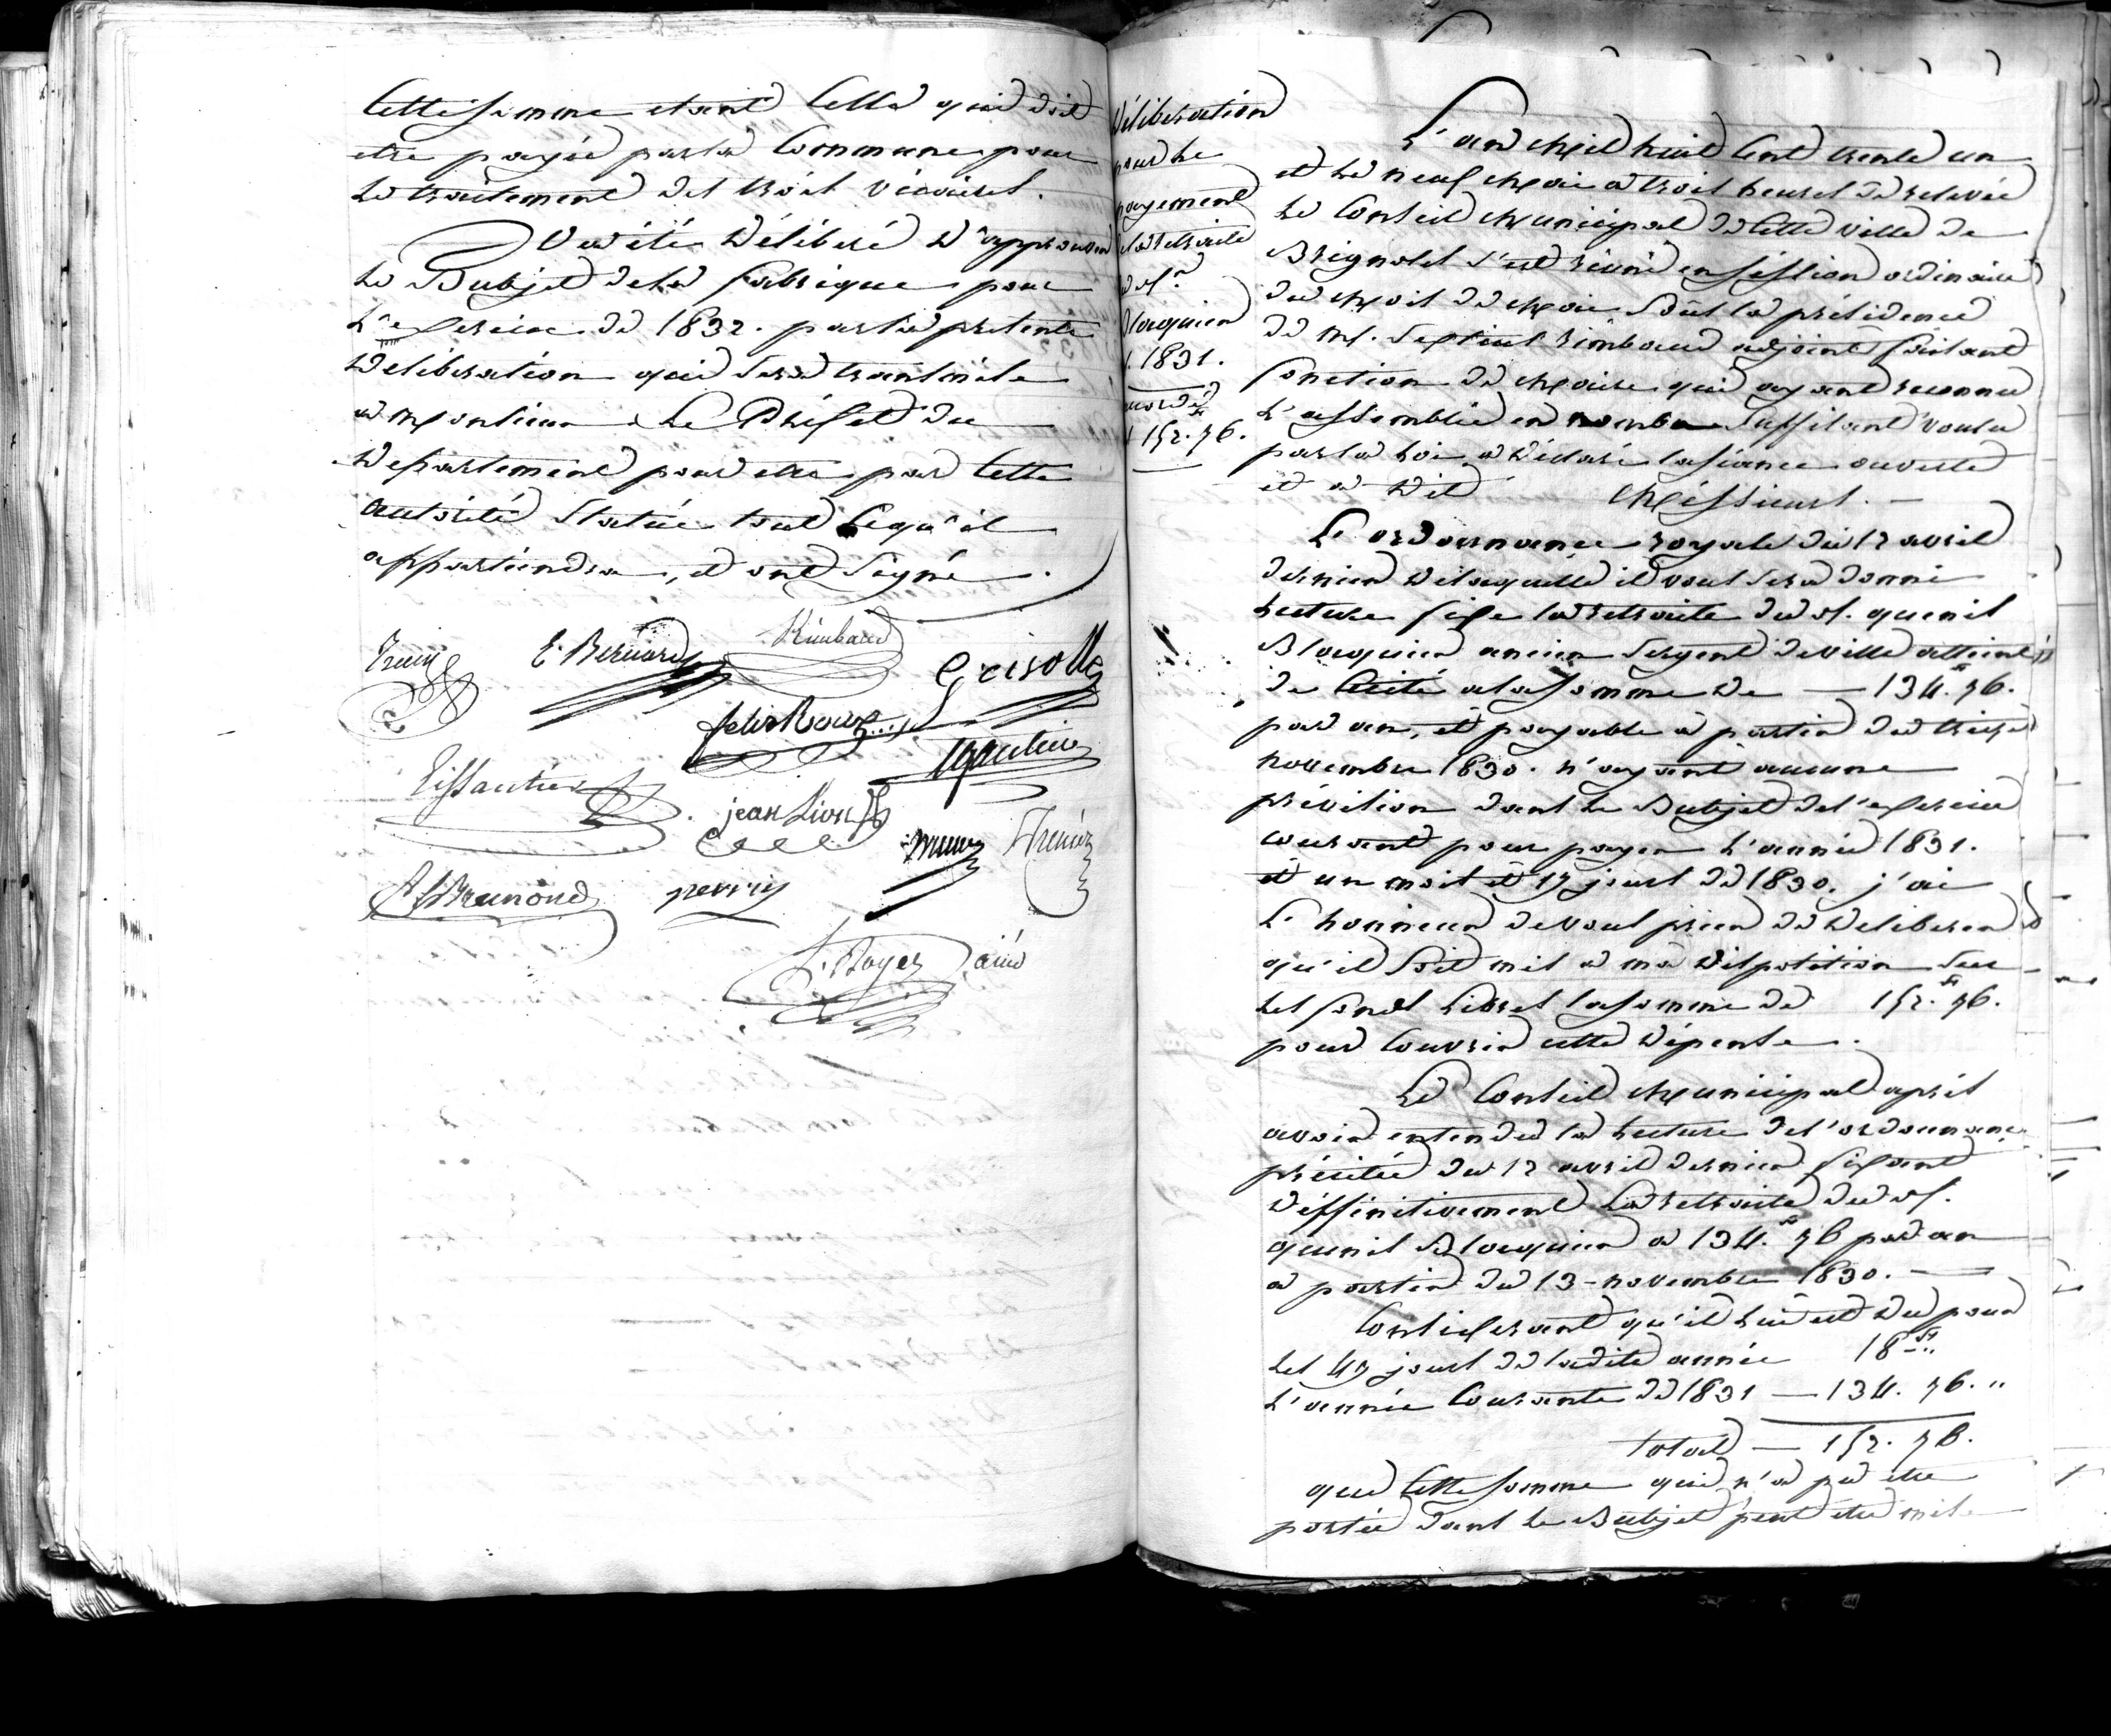 Cette somme etant celle qui doit
etre payée par la Commune pour
le traitement des trois vicaires.
Il a été Délibéré D'approuver
le Budjet de la fabrique pour
L'exercice de 1832. par la presente
Deliberation qui sera transmise
a monsieur Le Préfet du
Departement pour etre par cette
autorité statué tout ce qu'il
appartiendra, et ont signé.
E. Bernard Rimbaud Grisolle
felix Roux Gautier
Tissautier jean Lion
Bremond perrin
L. Boyer ainé
Déliberation
pour le
payement
de la retraite
du Sr.
Blacquier
1831.
152.76.
L'an Mil huit Cent trente un
et le neuf Mai a trois heures de relevée
Le Conseil Municipal de cette ville de
Brignoles s'est réuni en session ordinaire
du Mois de Mai sous la présidence
de Mr. Rimbaud adjoint faisant
fonction de Maire qui ayant reconnu
L'assemblée en nombre suffisant voulu
par la Loi a déclaré la séance ouverte
et a Dit Messieurs.
L'ordonnance royale du 12 avril
dernier de laquelle il vous sera donné
lecture fixe la retraite du Sr. quenis
Blacquier ancien sergent de ville atteint
de Cécité a la somme de — 134.f 76.
par an, et payable a partir du treize
novembre 1830. n'ayant aucune
prévision dans le Budjet de l'exercice
courant pour payer L'année 1831.
et un mois et 17 jours de 1830. j'ai
L'honneur de vous prier de Deliberer
qu'il soit mis a ma Disposition sur
les fonds Libres la somme de 152.f 76.
pour Couvrir cette Dépense.
Le Conseil Municipal après
avoir entendu la lecture de l'ordonnance
précitée du 12 avril dernier fixant
Déffinitivement La retraite du Sr.
quenis Blacquier a 134.f 76 par an
a partir du 13 novembre 1830. —
Considerant qu'il lui est Du pour
les 47 jours de ladite année 18f "
L'année Courante de 1831 — 134. 76. "
total — 152. 76.
que Cette somme qui n'a pu etre
portée dans le Budjet peut etre mise